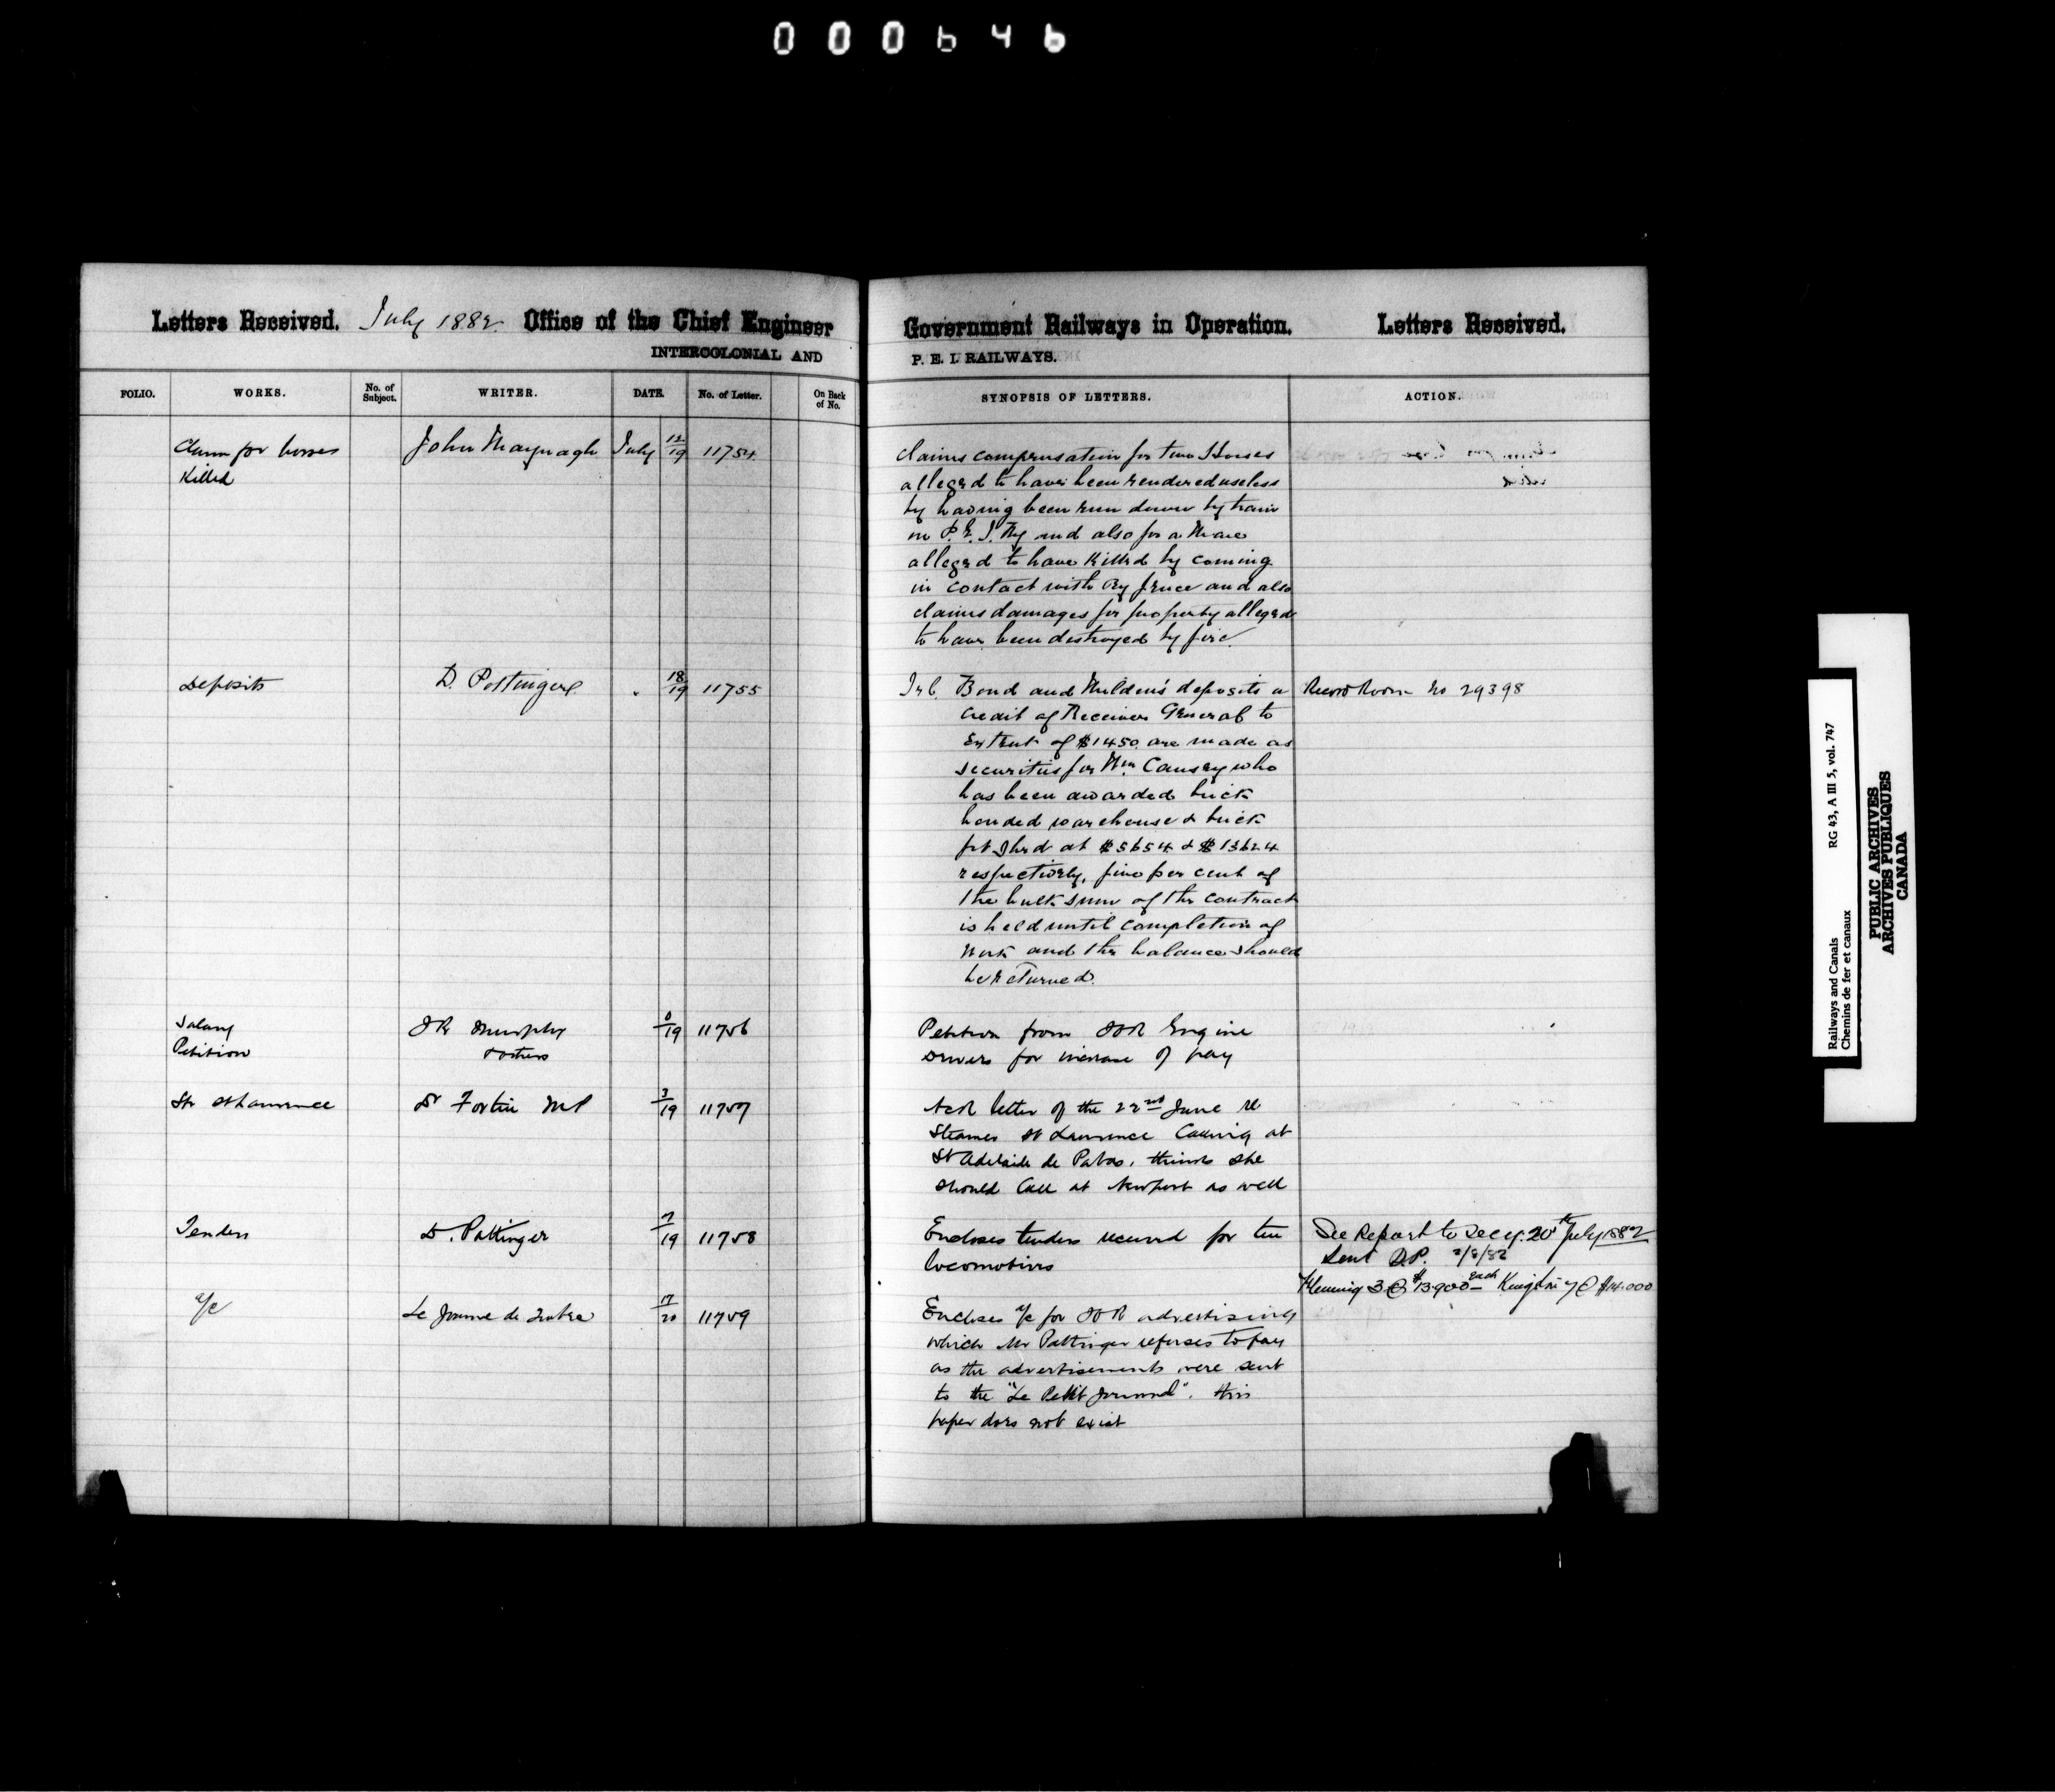 000646
Letters Received. July 1882 Office of the Chief Engineer Government Railways in Operation. Letters Received.
INTERCOLONIAL AND P. E. I. RAILWAYS.
FOLIO. WORKS. No. of Subject. WRITER. DATE. No. of Letter. On Back of No. SYNOPSIS OF LETTERS. ACTION.
Claim for horses
Killed
John July 12/19 11754
Claims compensation for two Horses
alleged to have been rendered useless
by having been run down by train
on P. E. I. Ry and also for a Mare
alleged to have killed by coming
in contact with Ry fence and also
claims damages for property alleged
to have been destroyed by fire.
Deposits
D. Pottinger " 18/19 11755
Bond and deposits a
credit of Receiver General to
Extent of $1450. are made as
securities for Wm Causey who
has been awarded brick
bonded warehouse & brick
frt Shed at $5654 & $13624
respectively, five per cent of
the bulk sum of the contract
is held until completion of
work and the balance should
be returned.
Record Room No 29398
Salary
Petition
Murphy
& others
0/19 11756
Petition from ICR Engine
Drivers for increase of pay
Str St Lawrence
Dr Fortin MP
3/19 11757
Ack letter of the 22nd June re
Steamer St Lawrence Calling at
St Adelaide de Pabos, thinks she
should Call at Newport as well
Tenders
D. Pottinger
7/19 11758
Encloses tenders received for ten
locomotives
See Report to Secy. 20th July 1882
Sent D.P. 2/8/82
Fleming 3 @ $13.900 each Kingston 7 @ $14.000
a/c
17/20 11759
Encloses a/c for ICR advertising
which Mr Pottinger refuses to pay
as the advertisements were sent
to the "Le Petit Journal". this
paper does not exist
Railways and Canals RG 43, A III 5, vol. 747
Chemins de fer et canaux
PUBLIC ARCHIVES
ARCHIVES PUBLIQUES
CANADA